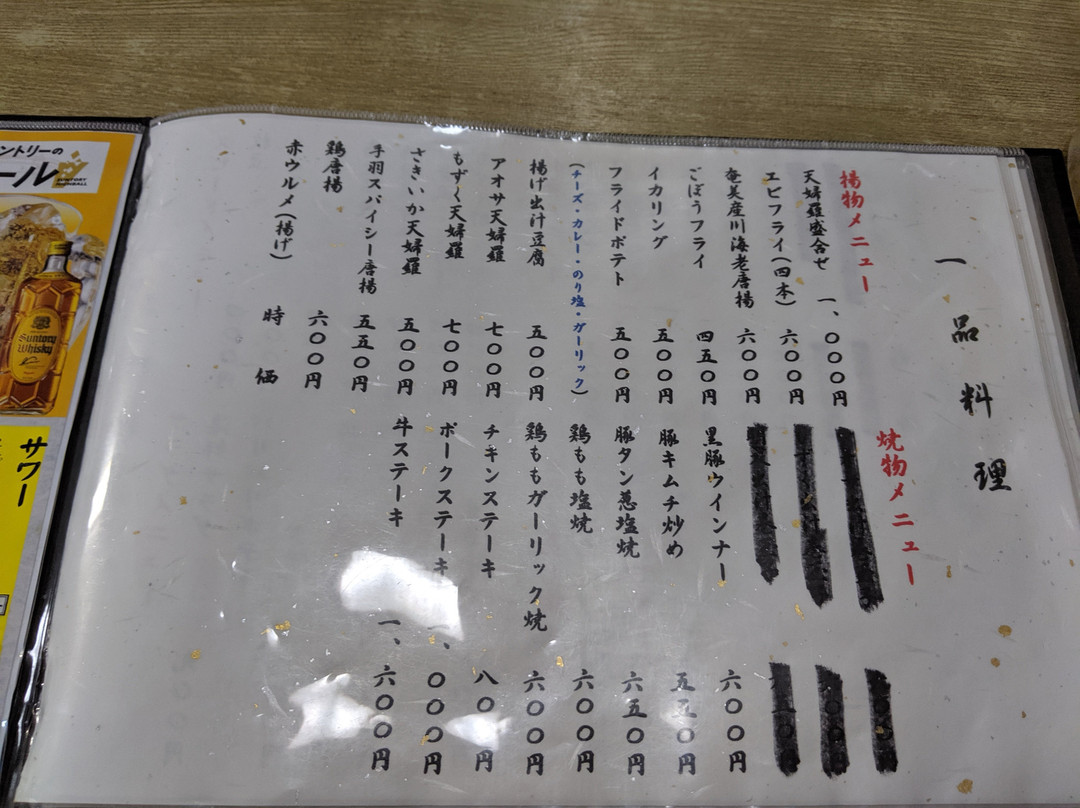 一品料理
揚物メニュー
天婦羅盛合せ 一、〇〇〇円
エビフライ(四本) 六〇〇円
奄美産川海老唐揚 六〇〇円
ごぼうフライ 四五〇円
イカリング 五〇〇円
フライドポテト 五〇〇円
(チーズ・カレー・のり塩・ガーリック)
揚げ出汁豆腐 五〇〇円
アオサ天婦羅 七〇〇円
もずく天婦羅 七〇〇円
さきいか天婦羅 五〇〇円
手羽スパイシー唐揚 五五〇円
鶏唐揚 六〇〇円
赤ウルメ(揚げ) 時価
焼物メニュー
黒豚ウインナー 六〇〇円
豚キムチ炒め 五五〇円
豚タン葱塩焼 六五〇円
鶏もも塩焼 六〇〇円
鶏ももガーリック焼 六〇〇円
チキンステーキ 八〇〇円
ポークステーキ 一、〇〇〇円
牛ステーキ 一、六〇〇円
ントリーの
ール
SUNTORY
HIGHBALL
Suntory
Whisky
サワー